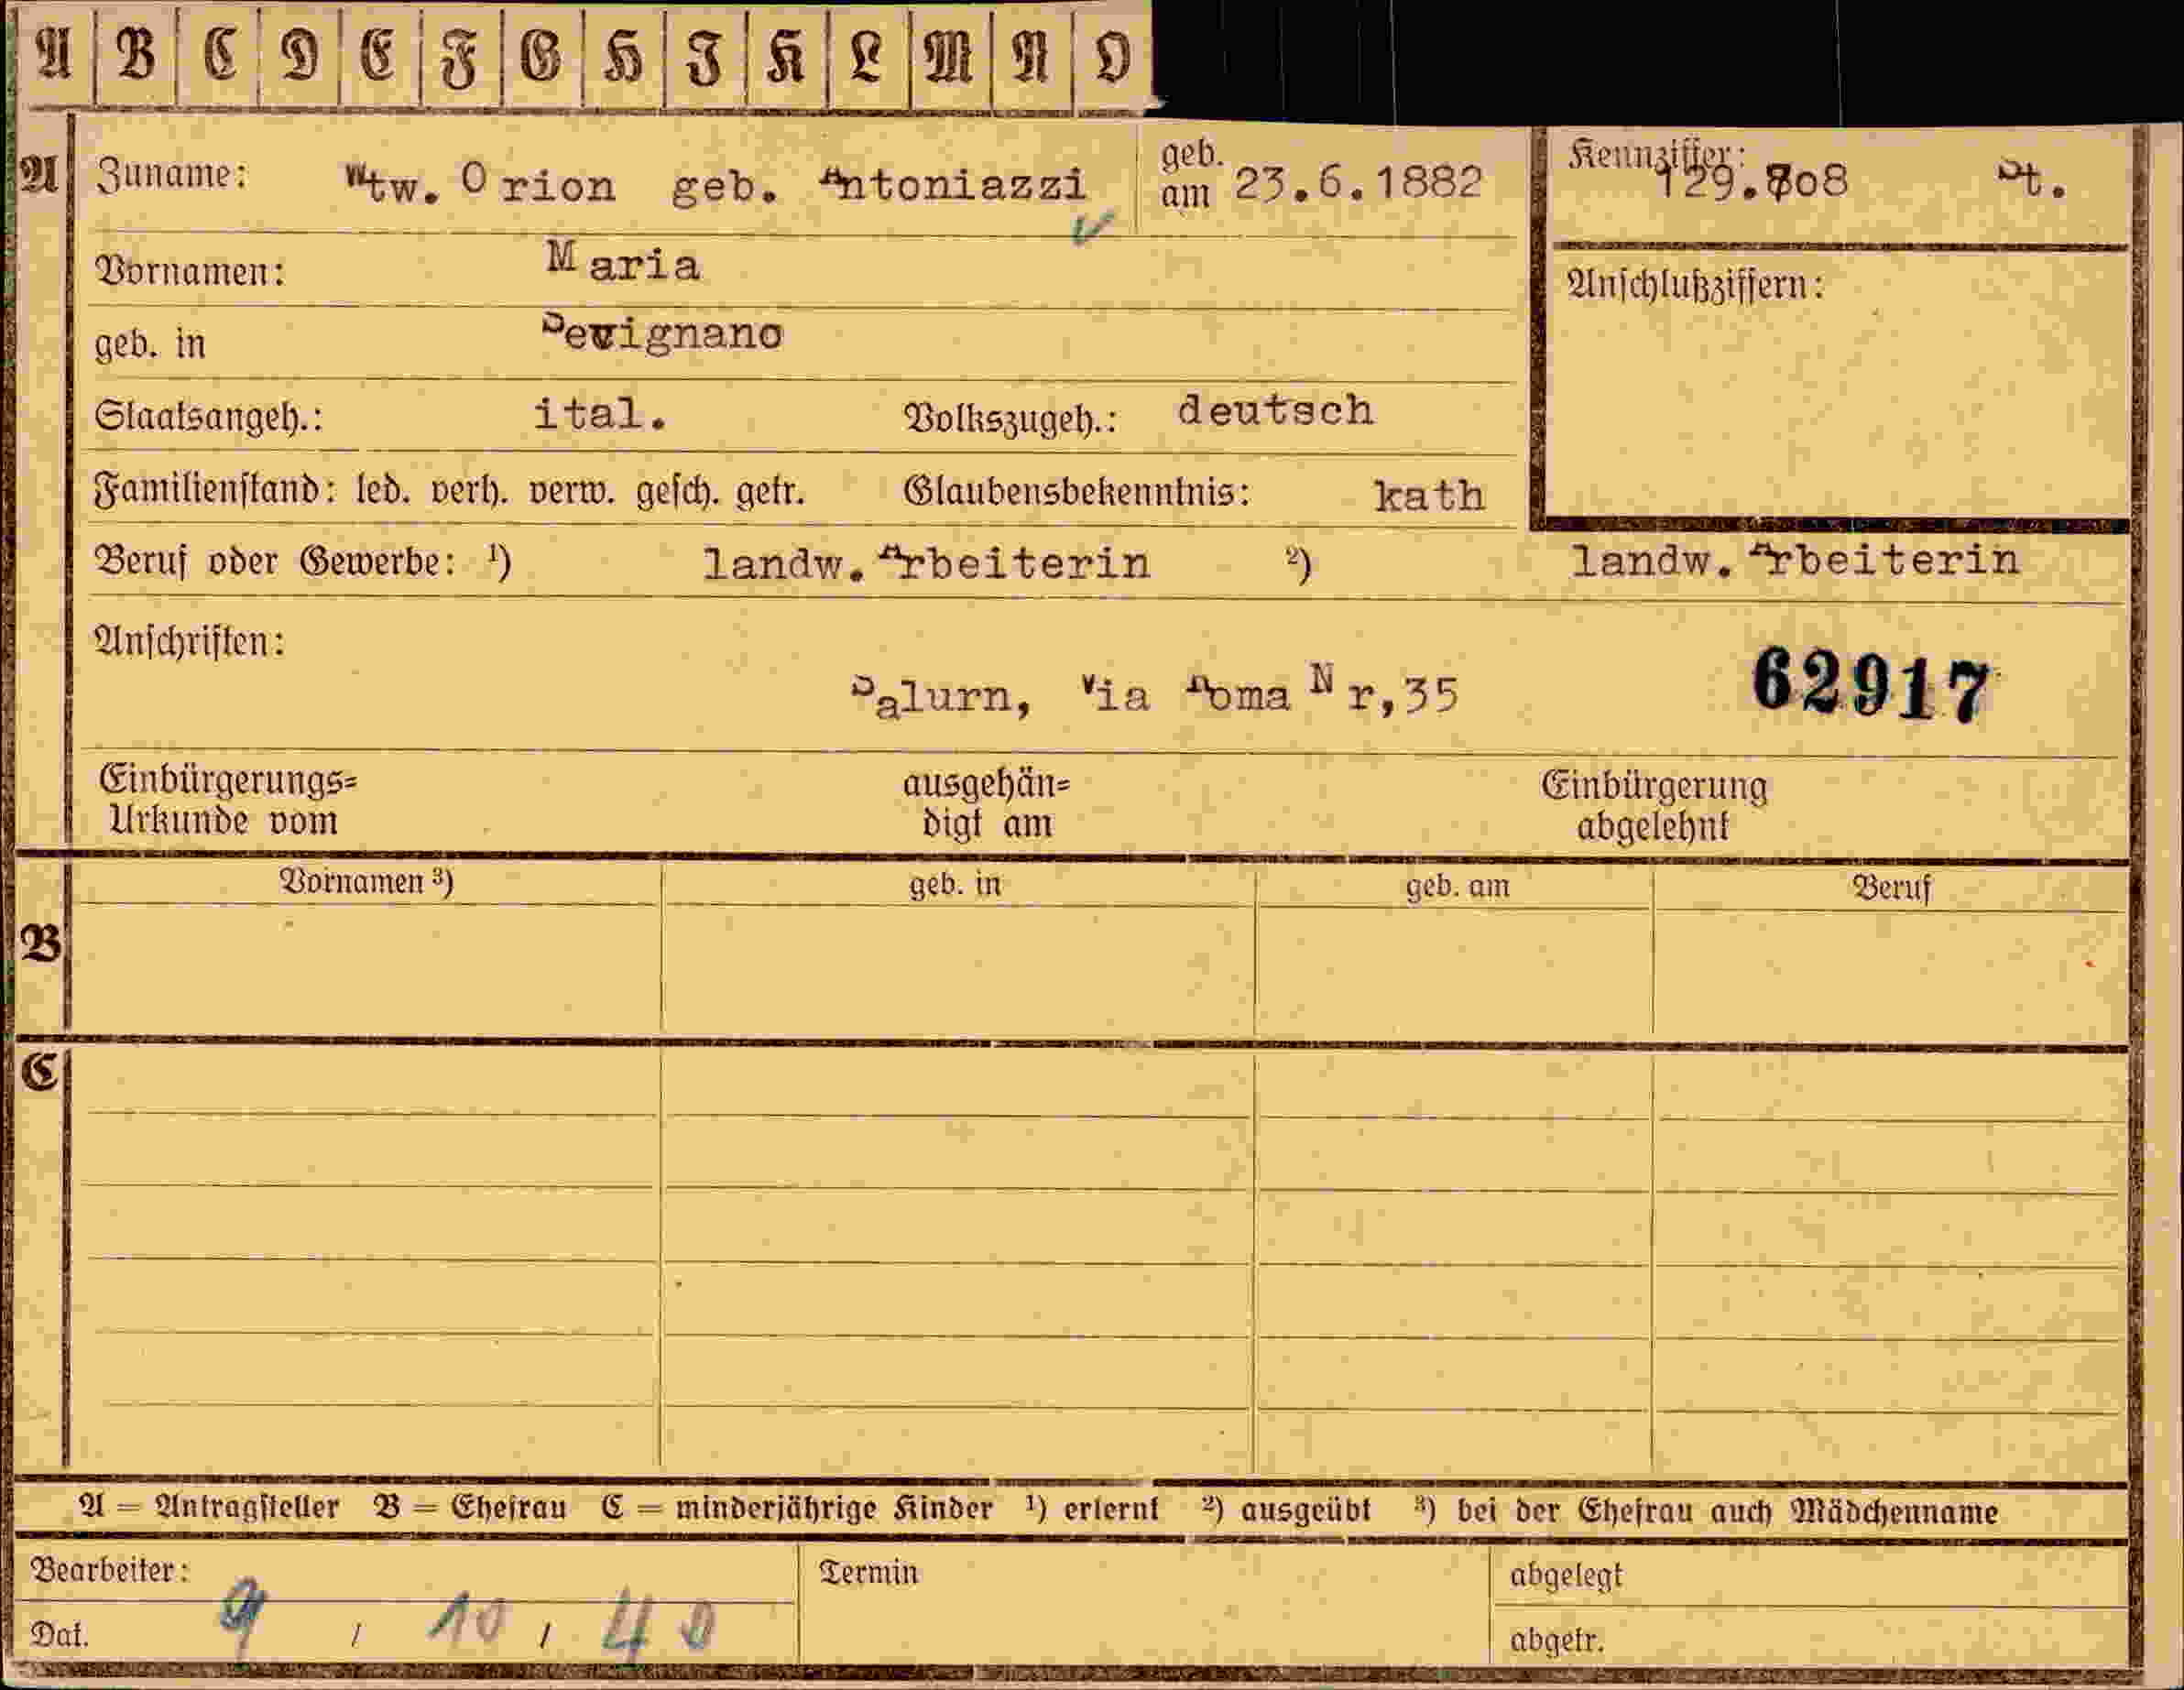 A B C D E F G H I K L M N O
A Zuname: Wtw. Orion geb. Antoniazzi geb. am 23.6.1882 Kennziffer: 129.708 St.
Vornamen: Maria Anschlußziffern:
geb. in Sevignano
Staatsangeh.: ital. Volkszugeh.: deutsch
Familienstand: led. verh. verw. gesch. getr. Glaubensbekenntnis: kath
Beruf oder Gewerbe: ¹) landw. Arbeiterin ²) landw. Arbeiterin
Anschriften:
Salurn, Via Roma Nr,35 62917
Einbürgerungs= ausgehän= Einbürgerung
Urkunde vom digt am abgelehnt
Vornamen ³) geb. in geb. am Beruf
B
C
A = Antragsteller B = Ehefrau C = minderjährige Kinder ¹) erlernt ²) ausgeübt ³) bei der Ehefrau auch Mädchenname
Bearbeiter: Termin abgelegt
Dat. 9 / 10 / 40 abgetr.